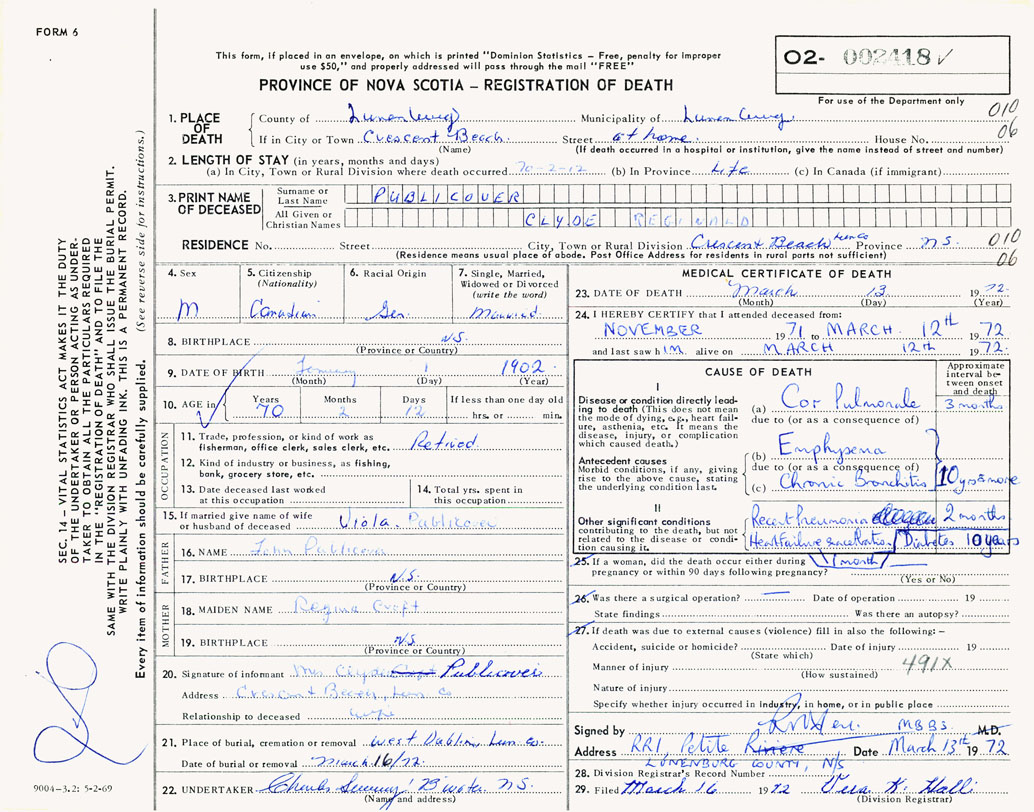 FORM 6
This form, if placed in an envelope, on which is printed "Dominion Statistics – Free, penalty for improper
use $50," and properly addressed will pass through the mail "FREE"
O2- 002418 ✓
PROVINCE OF NOVA SCOTIA – REGISTRATION OF DEATH
For use of the Department only
010
06
1. PLACE OF DEATH
County of Lunenburg Municipality of Lunenburg
If in City or Town Crescent Beach Street at home House No.
(Name) (If death occurred in a hospital or institution, give the name instead of street and number)
2. LENGTH OF STAY (in years, months and days)
(a) In City, Town or Rural Division where death occurred 70-2-12 (b) In Province Life (c) In Canada (if immigrant)
3. PRINT NAME OF DECEASED
Surname or Last Name PUBLICOVER
All Given or Christian Names CLYDE REGINALD
RESIDENCE No. Street City, Town or Rural Division Crescent Beach Lun Co Province N.S. 010
(Residence means usual place of abode. Post Office Address for residents in rural parts not sufficient) 06
SEC. 14 – VITAL STATISTICS ACT MAKES IT THE DUTY
OF THE UNDERTAKER OR PERSON ACTING AS UNDER-
TAKER TO OBTAIN ALL THE PARTICULARS REQUIRED
IN THE "REGISTRATION OF DEATH" AND TO FILE THE
SAME WITH THE DIVISION REGISTRAR WHO SHALL ISSUE THE BURIAL PERMIT.
WRITE PLAINLY WITH UNFADING INK. THIS IS A PERMANENT RECORD.
Every item of information should be carefully supplied. (See reverse side for instructions.)
4. Sex M
5. Citizenship (Nationality) Canadian
6. Racial Origin Ger.
7. Single, Married, Widowed or Divorced (write the word) Married
8. BIRTHPLACE N.S.
(Province or Country)
9. DATE OF BIRTH 1 1902
(Month) (Day) (Year)
10. AGE in Years 70 Months 2 Days 12 If less than one day old hrs. or min.
OCCUPATION
11. Trade, profession, or kind of work as
fisherman, office clerk, sales clerk, etc. Retired
12. Kind of industry or business, as fishing,
bank, grocery store, etc.
13. Date deceased last worked
at this occupation
14. Total yrs. spent in
this occupation
15. If married give name of wife
or husband of deceased Viola Publicover
FATHER
16. NAME John Publicover
17. BIRTHPLACE N.S.
(Province or Country)
MOTHER
18. MAIDEN NAME Regina Croft
19. BIRTHPLACE N.S.
(Province or Country)
20. Signature of informant Mrs Clyde Publicover
Address Crescent Beach, Lun Co
Relationship to deceased wife
21. Place of burial, cremation or removal West Dublin, Lun Co.
Date of burial or removal March 16/72
22. UNDERTAKER Charles B'water N.S.
(Name and address)
9004-3.2: 5-2-69
MEDICAL CERTIFICATE OF DEATH
23. DATE OF DEATH March 13 1972
(Month) (Day) (Year)
24. I HEREBY CERTIFY that I attended deceased from:
NOVEMBER 1971 to MARCH 12th 1972
and last saw hIM alive on MARCH 12th 1972.
CAUSE OF DEATH
Approximate interval between onset and death
I
Disease or condition directly lead-
ing to death (This does not mean
the mode of dying, e.g., heart fail-
ure, asthenia, etc. It means the
disease, injury, or complication
which caused death.)
(a) Cor Pulmonale 3 months
due to (or as a consequence of)
Antecedent causes
Morbid conditions, if any, giving
rise to the above cause, stating
the underlying condition last.
(b) Emphysema
due to (or as a consequence of)
(c) Chronic Bronchitis 10 yrs & more
II
Other significant conditions
contributing to the death, but not
related to the disease or condi-
tion causing it.
Recent Pneumonia 2 months
Heart Failure & Diabetes 10 years
(1 month)
25. If a woman, did the death occur either during
pregnancy or within 90 days following pregnancy?
(Yes or No)
26. Was there a surgical operation? — Date of operation 19
State findings Was there an autopsy?
27. If death was due to external causes (violence) fill in also the following: –
Accident, suicide or homicide? Date of injury 19
(State which)
Manner of injury 491X
(How sustained)
Nature of injury
Specify whether injury occurred in industry, in home, or in public place
Signed by MBBS. M.D.
Address RR1, Petite Riviere Date March 13th 1972
LUNENBURG COUNTY, N/S
28. Division Registrar's Record Number
29. Filed March 16 1972 Vera K. Halli
(Division Registrar)